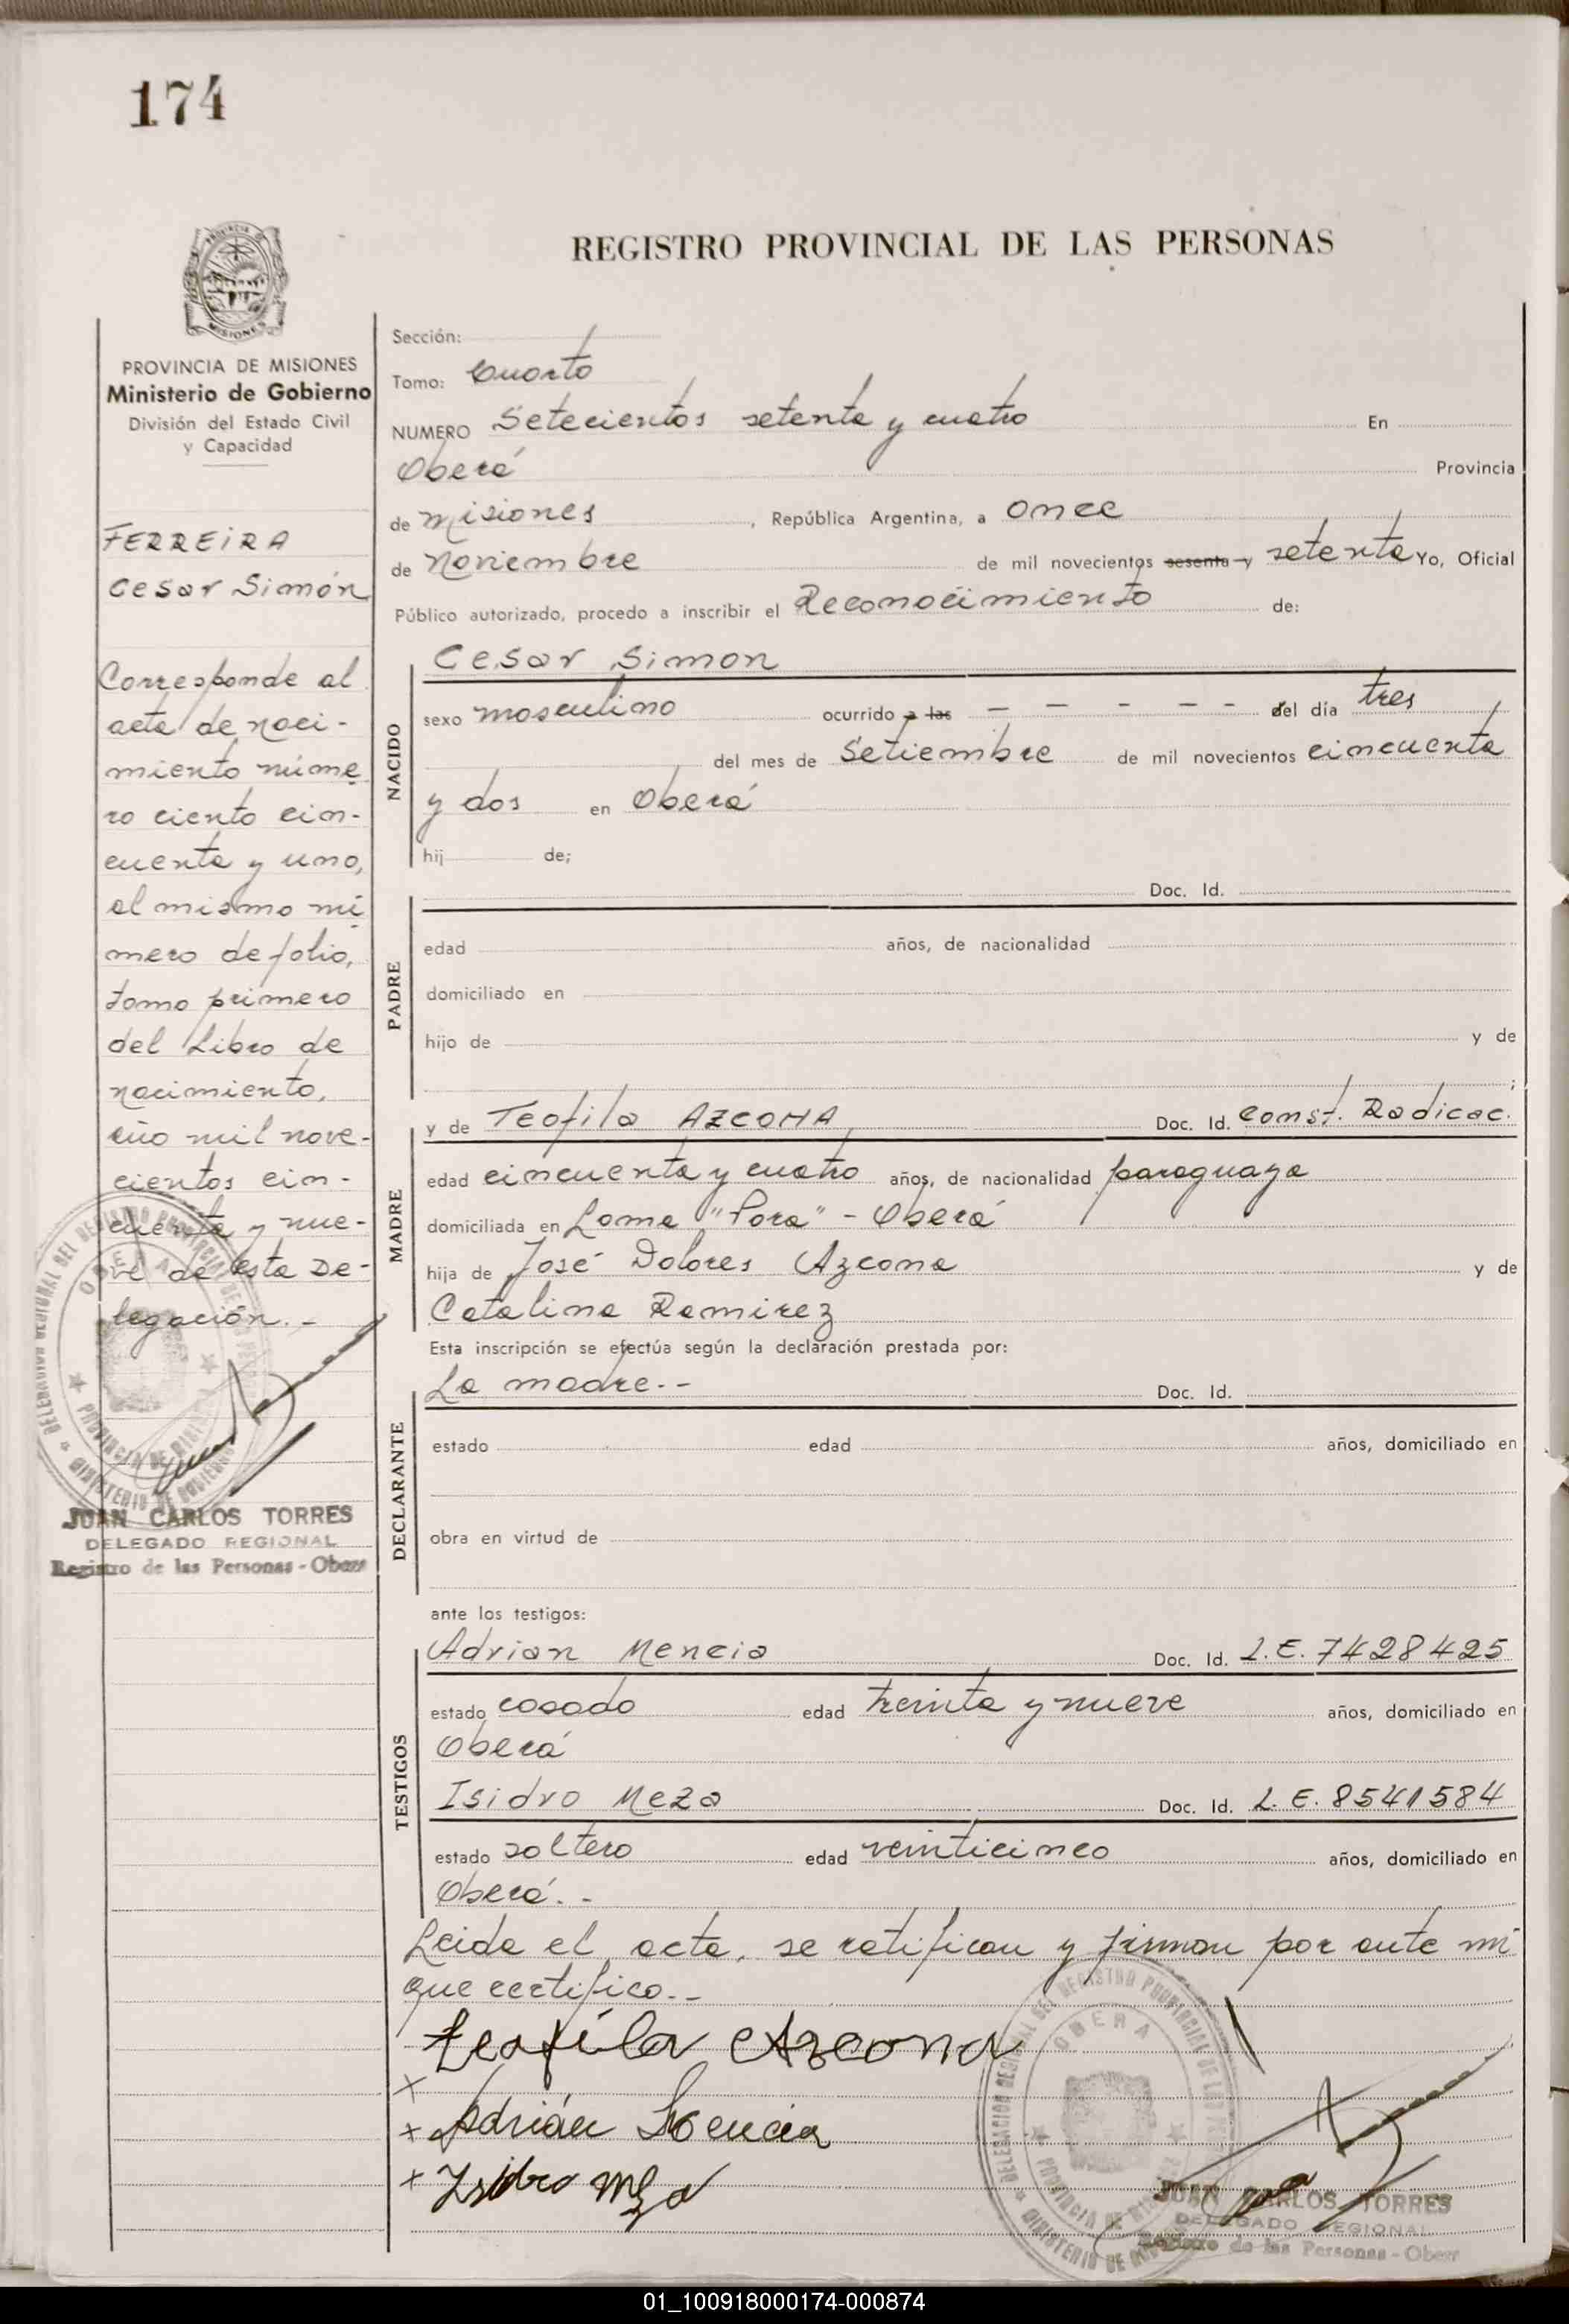 174
REGISTRO PROVINCIAL DE LAS PERSONAS
PROVINCIA DE MISIONES
Ministerio de Gobierno
División del Estado Civil
y Capacidad
FERREIRA
Cesar Simón
Corresponde al
acta de naci-
miento núme
ro ciento cin-
cuenta y uno,
al mismo nú
mero de folio,
tomo primero
del Libro de
nacimiento,
año mil nove-
cientos cin-
cuenta y nue-
ve de esta De-
legación.-
JUAN CARLOS TORRES
DELEGADO REGIONAL
Registro de las Personas - Obera
Sección:
Tomo: Cuarto
NUMERO Setecientos setenta y cuatro En
Oberá Provincia
de Misiones, República Argentina, a once
de Noviembre de mil novecientos sesenta y setenta Yo, Oficial
Público autorizado, procedo a inscribir el Reconocimiento de:
NACIDO
Cesar Simon
sexo masculino ocurrido a las - - - - - - del día tres
del mes de Setiembre de mil novecientos cincuenta
y dos en Oberá
hij de;
PADRE
Doc. Id.
edad años, de nacionalidad
domiciliado en
hijo de y de
;
MADRE
y de Teofila AZCONA Doc. Id. Const. Radicac.
edad cincuenta y cuatro años, de nacionalidad paraguaya
domiciliada en Loma "Pora" - Oberá
hija de José Dolores Azcona y de
Catalina Ramirez
Esta inscripción se efectúa según la declaración prestada por:
DECLARANTE
La madre.-- Doc. Id.
estado edad años, domiciliado en
obra en virtud de
ante los testigos:
TESTIGOS
Adrian Mencia Doc. Id. L.E. 7428425
estado casado edad treinta y nueve años, domiciliado en
Oberá
Isidro Meza Doc. Id. L.E. 8541584
estado soltero edad veinticinco años, domiciliado en
Oberá.-
Leida el acta, se ratifican y firman por ante mí
que certifico.--
Teofila Azcona
x
x Adrián Mencia
x Isidro Meza
DELEGACION REGIONAL DEL REGISTRO PROVINCIAL DE LAS
OBERA
PROVINCIA DE MISIONES
MINISTERIO DE GOBIERNO
JUAN CARLOS TORRES
DELEGADO REGIONAL
Registro de las Personas - Obera
01_100918000174-000874